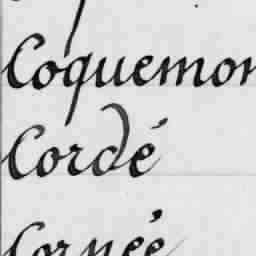 Coquemon
Cordé
Cornée